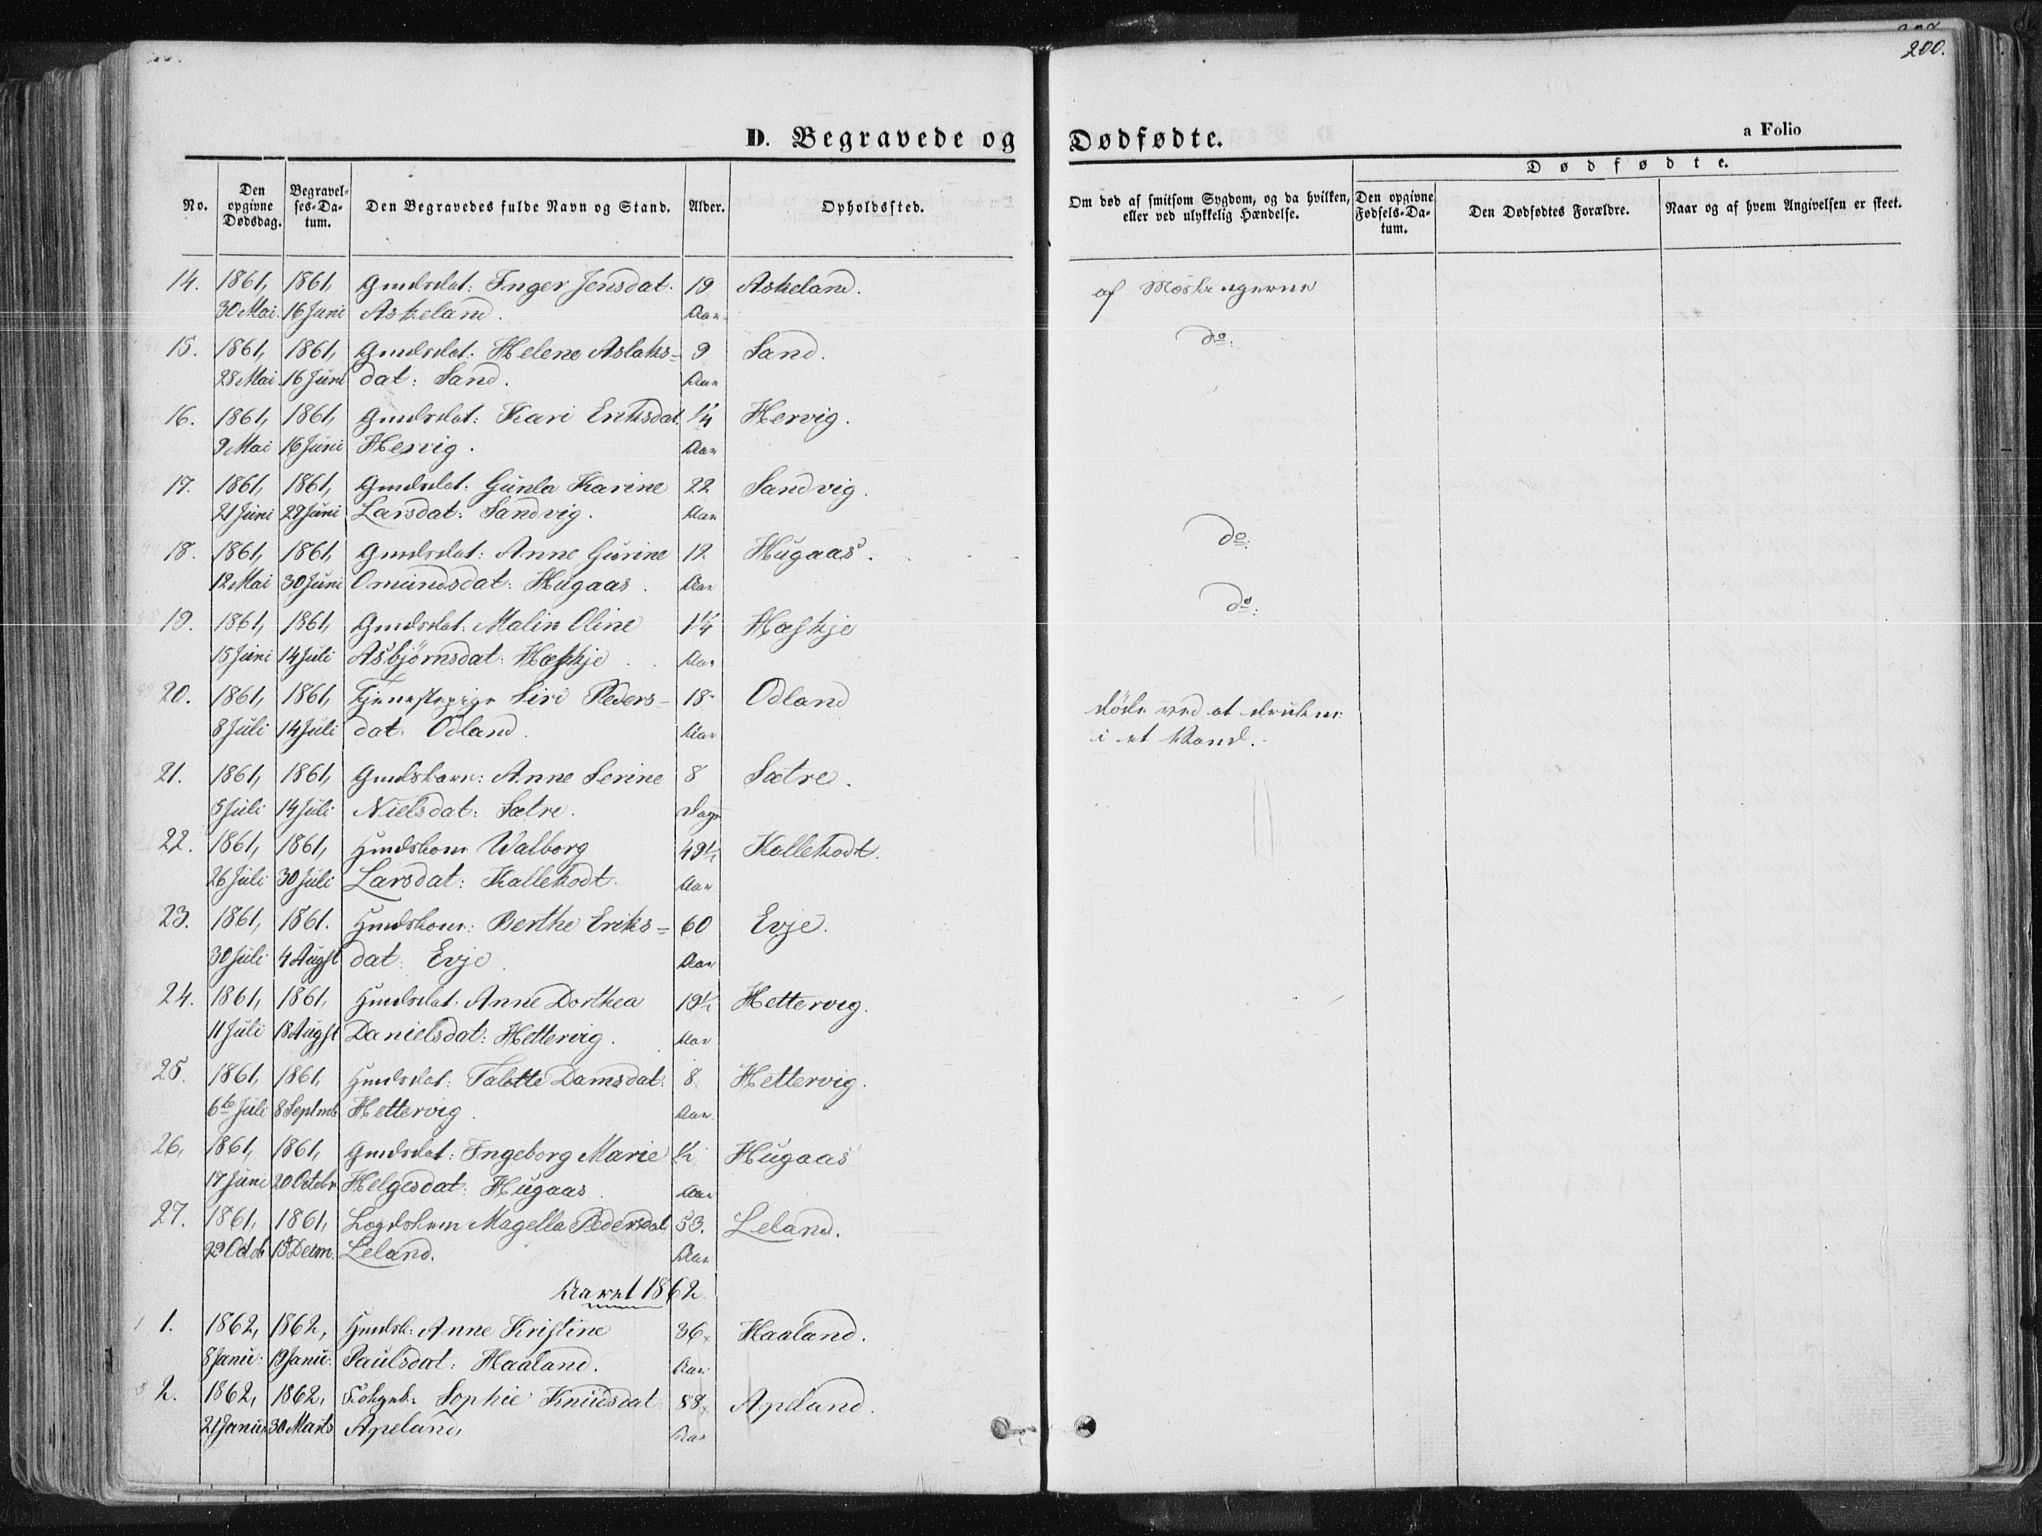 200.
D. Begravede og Dødfødte.
a Folio
No.
Den opgivne Dødsdag.
Begravelses-Datum.
Den Begravedes fulde Navn og Stand.
Alder.
Opholdssted.
Om død af smitsom Sygdom, og da hvilken, eller ved ulykkelig Hændelse.
Dødfødte.
Den opgivne Fødsels-Datum.
Den Dødfødtes Forældre.
Naar og af hvem Angivelsen er skeet.
14. 1861, 1861, Gmdsdat: Inger Jensdat. 19 Askeland. af
30 Mai. 16 Juni Askeland. Aar
15. 1861, 1861, Gmdsdat: Helene Aslaks- 9 Sand. do:
28 Mai 16 Juni dat: Sand. Aar
16. 1861, 1861, Gmdsdat: Kari Eriksdat. 1/4 Hervig.
9 Mai 16 Juni Hervig. Aar
17. 1861, 1861, Gmdsdat: Gunla Karine 22 Sandvig.
21 Juni 29 Juni Larsdat: Sandvig. Aar do:
18. 1861, 1861, Gmdsdat: Anne Gurine 12 Hugaas.
12 Mai 30 Juni Omundsdat: Hugaas. Aar do:
19. 1861, 1861, Gmdsdat: Malin Oline 1 1/4
15 Juni 14 Juli Asbjørnsdat: Aar
20. 1861, 1861, Tjenestepige Siri Peders- 18 Odland døde ved at drukne
8 Juli 14 Juli dat: Odland. Aar i et Vand.
21. 1861, 1861, Anne Serine 8 Sætre.
5 Juli 14 Juli Nielsdat: Sætre. Dage
22. 1861, 1861, Walborg 49 1/2 Kollekodt.
26 Juli 30 Juli Larsdat: Kallekodt. Aar
23. 1861, 1861. Berthe Eriks- 60 Evje.
30 Juli 4 Augst dat: Evje. Aar
24. 1861, 1861, Hmdsdat: Anne Dorthea 19 1/2 Hettervig.
11 Juli 18 Augst Danielsdat: Hettervig. Aar
25. 1861, 1861, Hmdsdat: Talette Damsdat: 8 Hettervig.
6te Juli 8 Septmb Hettervig. Aar.
26. 1861, 1861, Gmdsdat: Ingeborg Marie 1/2 Hugaas
17 Juni 20 Octobr Helgesdat: Hugaas. Aar
27. 1861, 1861, Magella Pedersdat 53. Leland.
29 Octob 15 Decm. Leland. Aar
Aaret 1862.
1. 1862, 1862, Anne Kristine 36 Haaland.
8 Janu: 19 Janu: Paulsdat: Haaland. Aar
2. 1862, 1862, Sophie Knudsdat 88 Apeland.
21 Janu 30 Marts Apeland, Aar